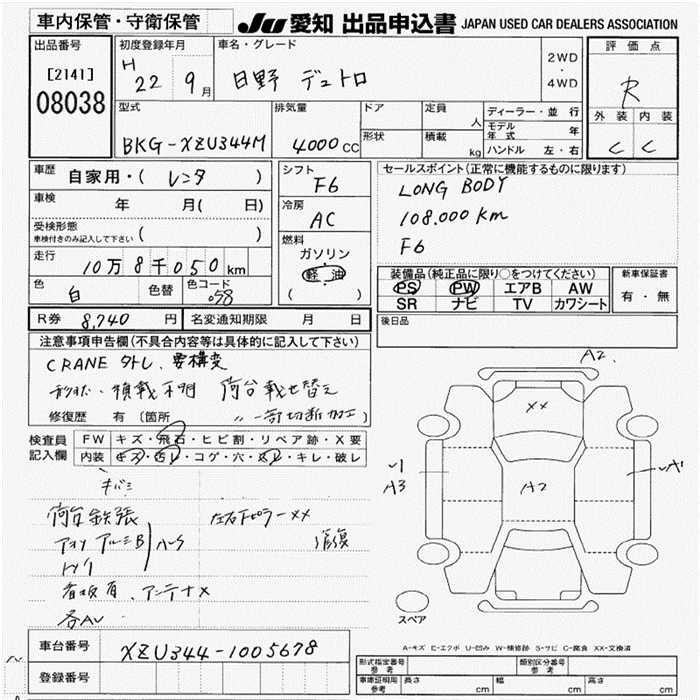 車内保管・守衛保管
JU 愛知 出品申込書 JAPAN USED CAR DEALERS ASSOCIATION
出品番号
[2141]
08038
初度登録年月
H 22 9月
車名・グレード
日野 デュトロ
2WD
・
4WD
評価点
R
外装 内装
C C
型式
BKG-XZU344M
排気量
4000cc
ドア
形状
定員 人
積載 kg
ディーラー・並行
モデル年式 年
ハンドル 左・右
車歴 自家用・( レンタ )
車検 年 月( 日)
受検形態
車検付きのみ記入して下さい ( )
走行 10万8千050km
色 白 色替 色コード 058
シフト F6
冷房 AC
燃料
ガソリン
軽油
( )
セールスポイント(正常に機能するものに限ります)
LONG BODY
108.000 km
F6
装備品(純正品に限り○をつけてください)
PS PW エアB AW
SR ナビ TV カワシート
新車保証書
有・無
R券 8,740 円 名変通知期限 月 日
後日品
注意事項申告欄(不具合内容等は具体的に記入して下さい)
CRANE 外し、要構変
積載不明 荷台載せ替え
修復歴 有(箇所 〃 一部切断加工)
検査員記入欄
FW キズ・飛石・ヒビ割・リペア跡・X要
内装 キズ・汚レ・コゲ・穴・スレ・キレ・破レ
キバミ
荷台鉄張
アオリ アルミB
左右Fピラー XX
看板有、アンテナX
各AU
A2
XX
A3
A2
スペア
A-キズ E-エクボ U-凹み W-補修跡 S-サビ C-腐食 XX-交換済
車台番号 XZU344-1005678
登録番号
形式指定番号 参考
類別区分番号 参考
車庫証明用 参考 長さ cm 幅 cm 高さ cm